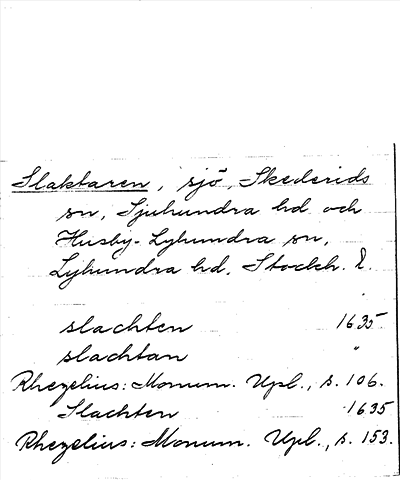 Slaktaren, sjö, Skederids
sn, Sjuhundra hd och
Husby-Lyhundra sn,
Lyhundra hd, Stockh. l.
slachten 1635
slachtan "
Rhezelius: Monum. Upl., s. 106.
Slachten 1635
Rhezelius: Monum. Upl., s. 153.